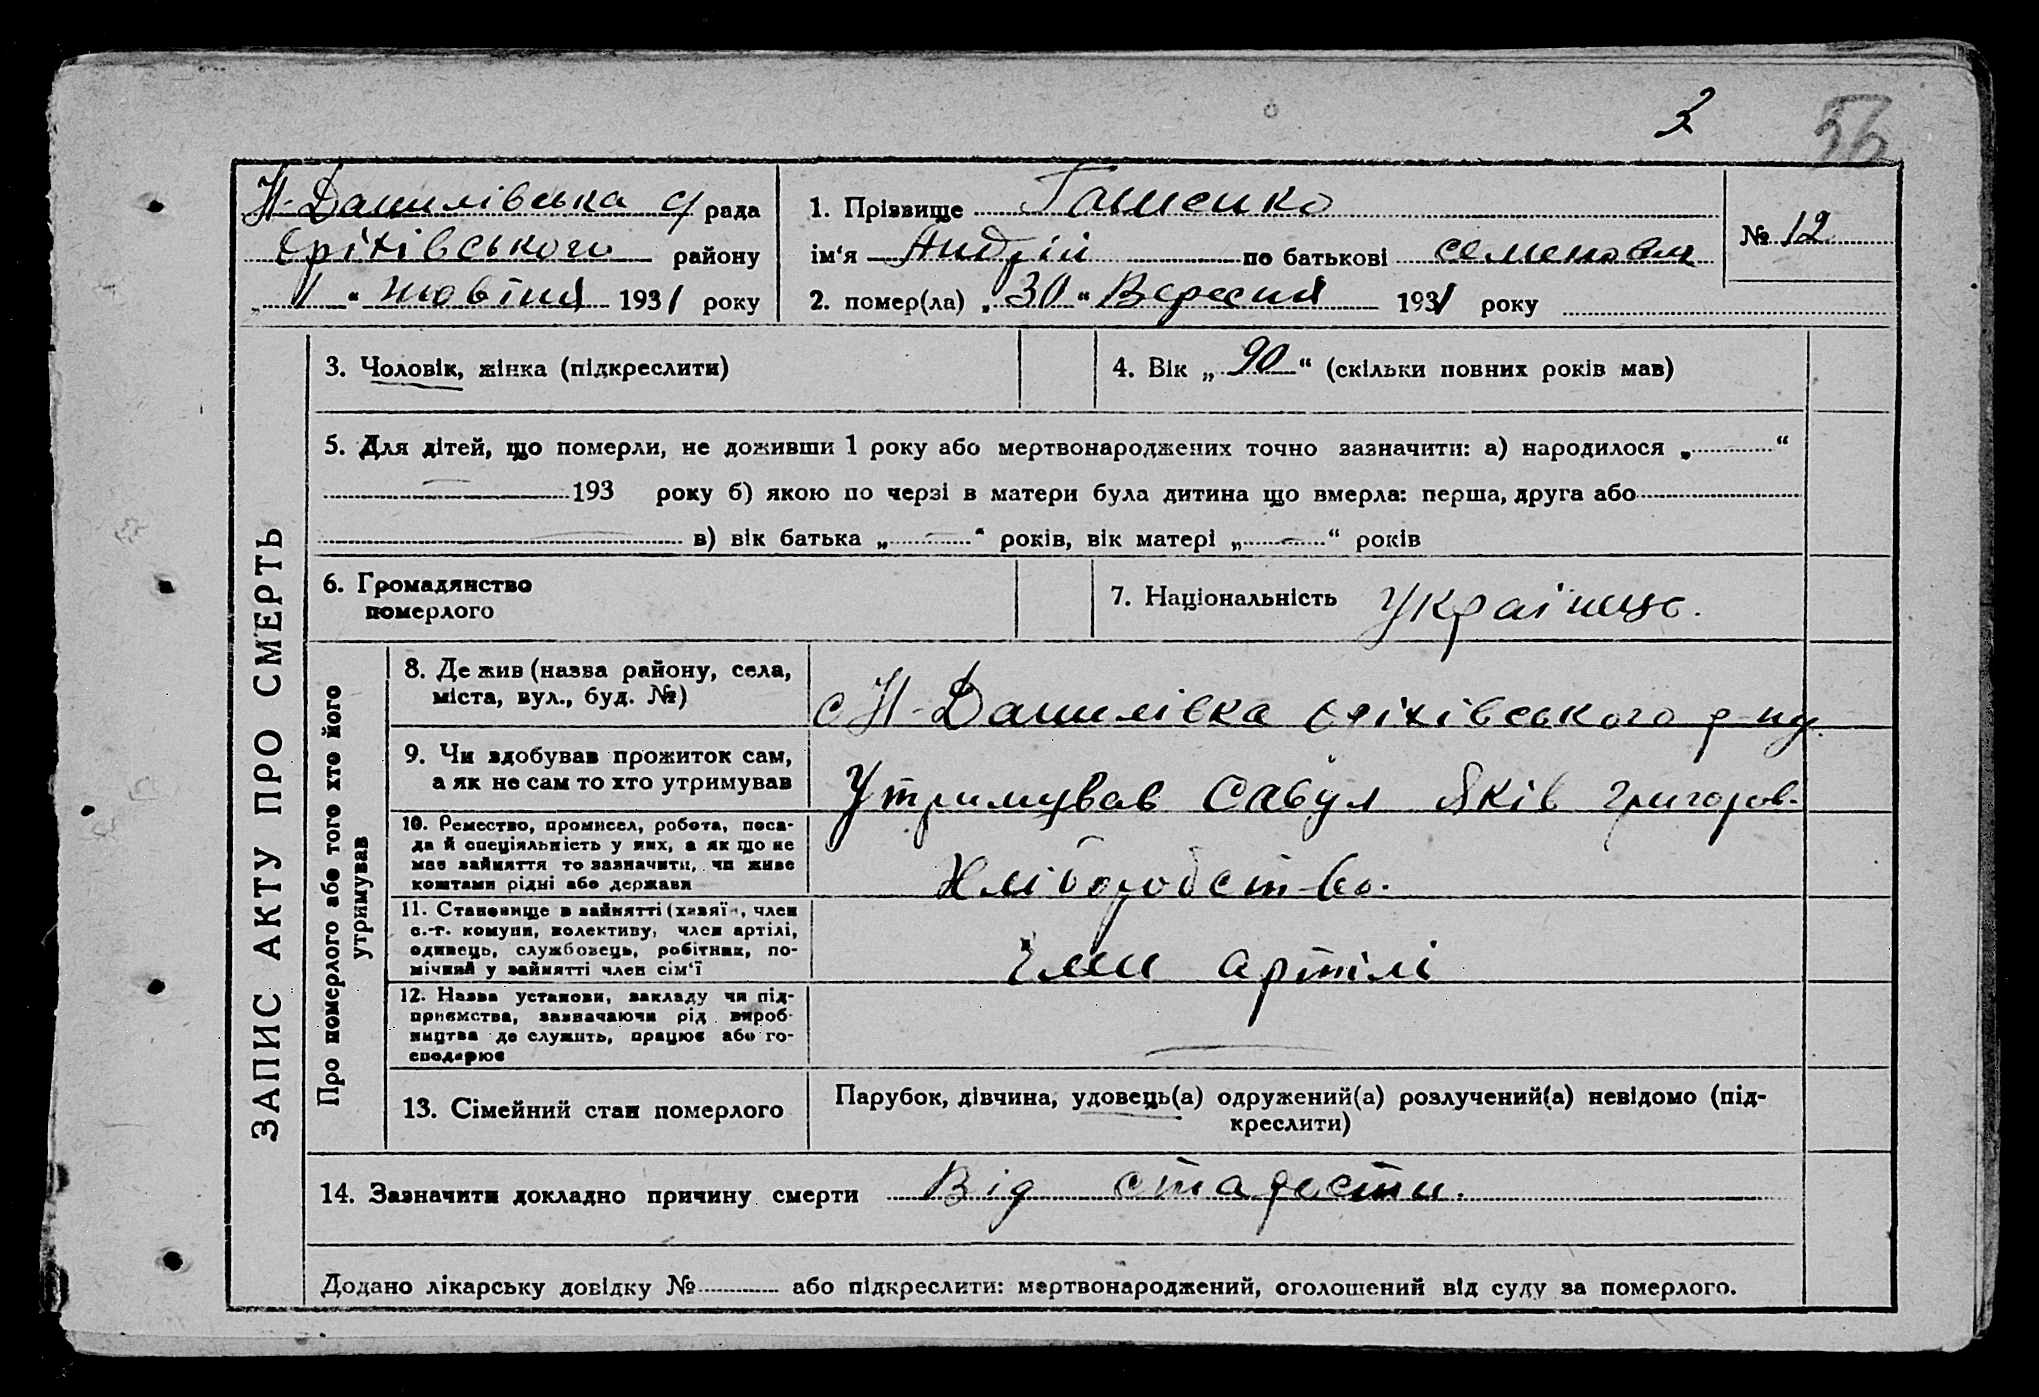 3 56
Н-Данилівська с/рада
Оріхівського району
„1“ жовтня 1931 року
1. Прізвище Гашенко
ім‘я Андрій по батькові Семенович
№ 12
2. помер(ла) „30“ Вересня 1931 року
3. Чоловік, жінка (підкреслити)
4. Вік „90“ (скільки повних років мав)
5. Для дітей, що померли, не доживши 1 року або мертвонароджених точно зазначити: а) народилося „ “
193 року б) якою по черзі в матери була дитина що вмерла: перша, друга або
в) вік батька „—“ років, вік матері „—“ років
6. Громадянство
померлого
7. Національність Українець.
ЗАПИС АКТУ ПРО СМЕРТЬ
Про померлого або того хто його
утримував
8. Де жив (назва району, села,
міста, вул., буд. №)
с Н-Данилівка Оріхівського р-ну
9. Чи здобував прожиток сам,
а як не сам то хто утримував
Утримував Савул Яків Григоров.
10. Ремество, промисел, робота, поса-
да й спеціяльність у них, а як що не
мав зайняття то зазначити, чи живе
коштами рідні або держави
Хліборобство.
11. Становище в зайнятті (хазяїн, член
с.-г. комуни, колективу, член артілі,
одинець, службовець, робітник, по-
мічний у зайнятті член сім‘ї
Член артілі
12. Назва установи, закладу чи під-
приємства, зазначаючи рід вироб-
ництва де служить, працює або го-
сподарює
13. Сімейний стан померлого
Парубок, дівчина, удовець(а) одружений(а) розлучений(а) невідомо (під-
креслити)
14. Зазначити докладно причину смерти Від старости.
Додано лікарську довідку № або підкреслити: мертвонароджений, оголошений від суду за померлого.